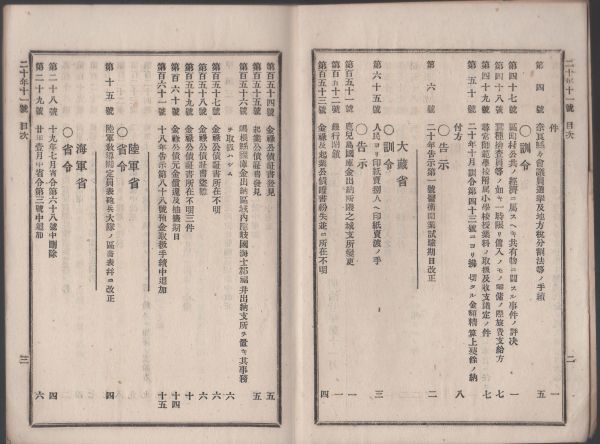 二十年十一號 目次 二
件 一
第四號 奈良縣々會議員選擧及地方稅分割法等ノ手續 五
〇訓令
第四十七號 區町村公共ノ經濟ニ屬スヘキ共有物ニ關スル事件ノ評決 一
第四十八號 蠶種檢査員等ノ如キ一時限リ傭入ノモノ解傭ノ際旅費支給方 七
第四十九號 尋常師範學校附屬小學校授業料ノ取扱及收支議定ノ件 七
第五十號 二十年十月訓令第四十三號ニヨリ
付方 八
〇告示
第六號 二十年告示第一號醫術開業試驗期日改正 二
大藏省
〇訓令
第六十五號 人民ヨリ印紙賣捌人ヘ印紙賣渡ノ手 三
〇告示
第百五十一號 鹿兒島國庫金出納所隈之城支所變更 一
第百五十二號 銀行閉鎖 一
第百五十三號 金祿及起業公債證書紛失並ニ所在不明 四
第百五十四號 金祿公債證書發見 五
第百五十五號 起業公債證書發見 五
第百五十六號 國庫金出納區域內隱岐國海士郡福井出納支所ヲ置キ其事務
ヲ取扱ハシム 六
第百五十七號 金祿公債證書所在不明 六
第百五十八號 金祿公債證書 六
第百五十九號 金祿公債證書所在不明三件 六
第百六十號 金祿公債元金償還及抽籤期日 十四
第百六十一號 十八年告示第八十八號預金取扱手續中追加 十五
陸軍省
〇省令
第十五號 陸軍 定員表砲兵大隊ノ區畵表 改正 四
海軍省
〇省令
第二十八號 十九年七月省令第六十八號中刪除 四
第二十九號 廿年壹月中省令第三號中追加 六
二十年十一號 目次 三